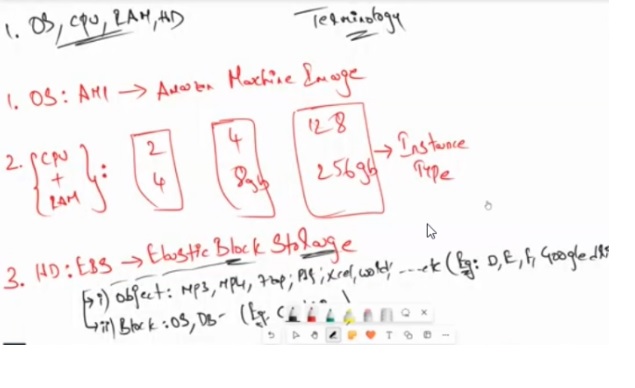 1. OS, CPU, RAM, HD
Terminology
1. OS: AMI → Amazon Machine Image
2. {CPU + RAM}:
2
4
4
8gb
128
256gb
→ Instance Type
3. HD: EBS → Elastic Block Storage
→ i) Object: MP3, MP4, ... (Eg: D, E, F, Google
→ ii) Block: OS, DB - (Eg: C